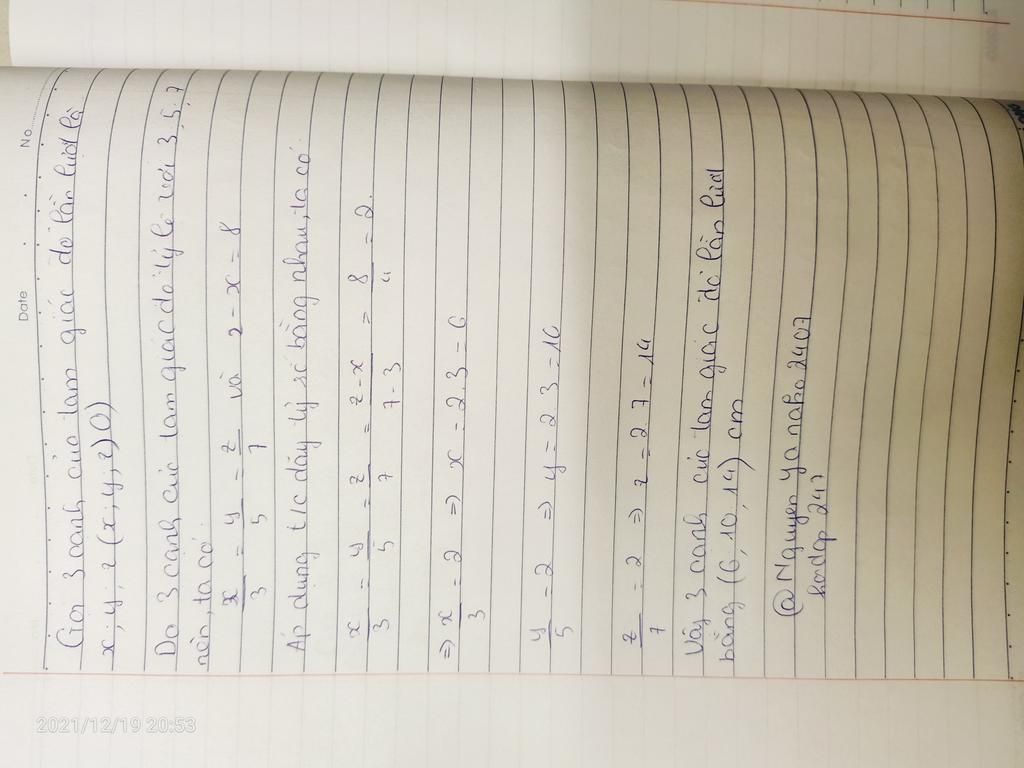 No.
Date
Gọi 3 cạnh của tam giác đó lần lượt là
x; y; z (x; y; z > 0)
Do 3 cạnh của tam giác đó tỷ lệ với 3, 5, 7
nên, ta có
x/3 = y/5 = z/7 và z - x = 8
Áp dụng t/c dãy tỷ số bằng nhau, ta có
x/3 = y/5 = z/7 = z-x/7-3 = 8/4 = 2.
=> x/3 = 2 => x = 2.3 = 6
y/5 = 2 => y = 2 3 = 10
z/7 = 2 => z = 2.7 = 14
Vậy 3 cạnh của tam giác đó lần lượt
bằng (6, 10, 14) cm
@Nguyen Yanako 2407
hoidap 247
2021/12/19 20:53